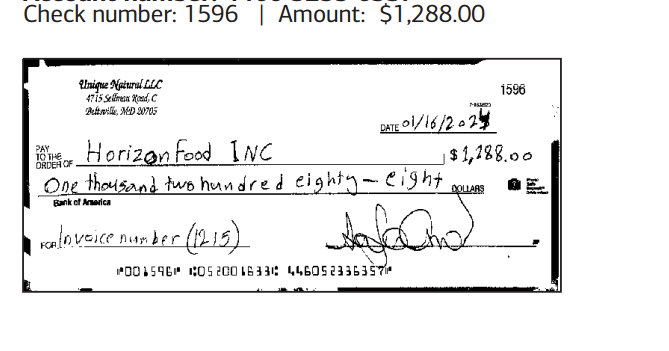 Check number: 1596 | Amount: $1,288.00
Unique Natural LLC
4715 Sellman Road, C
Beltsville, MD 20705
1596
DATE 01/16/2024
PAY TO THE ORDER OF Horizon Food INC $1,288.00
One thousand two hundred eighty-eight DOLLARS
Bank of America
FOR Invoice number (1215)
⑈001596⑈ ⑆052001633⑆ 446052336357⑈